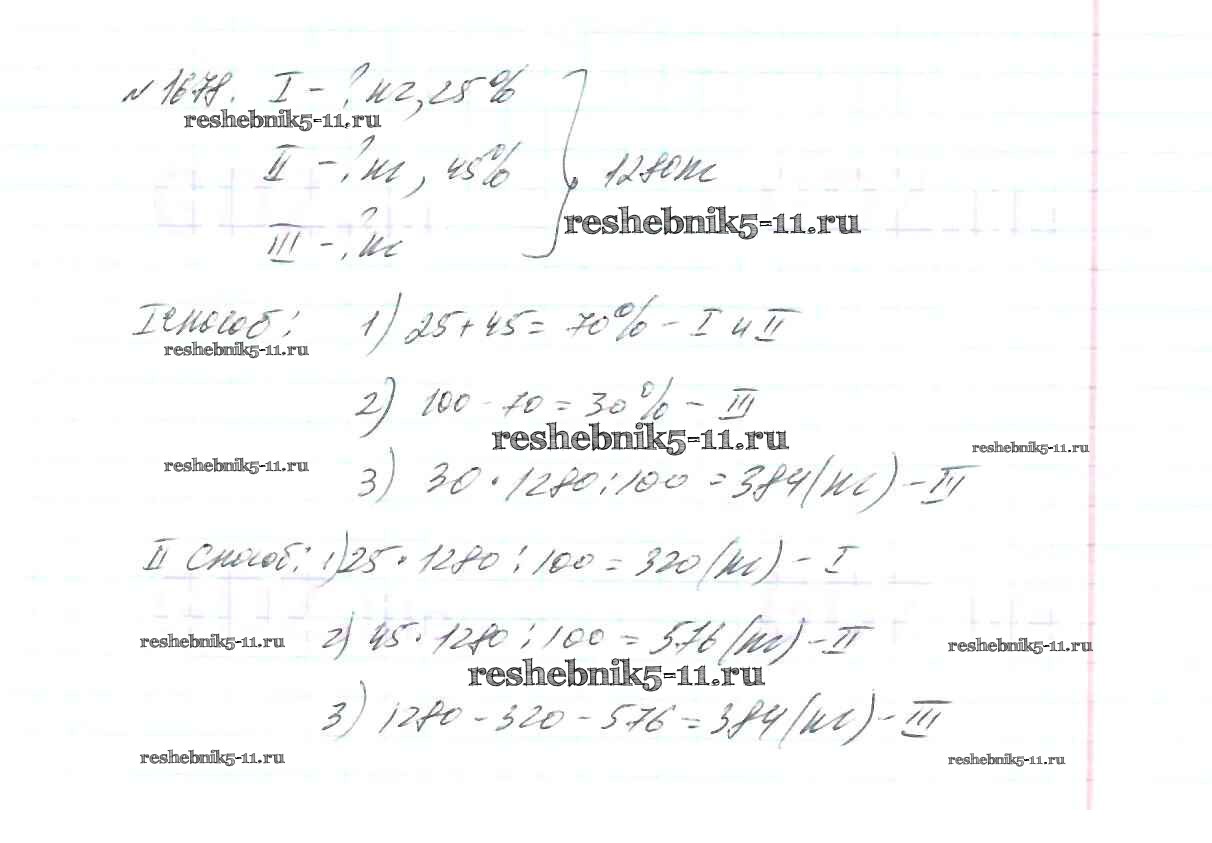 № 1678. I – ? кг, 25%
reshebnik5-11.ru
II – ? кг, 45%
1280 кг
reshebnik5-11.ru
III – ? кг
I способ: 1) 25 + 45 = 70% – I и II
reshebnik5-11.ru
2) 100 - 70 = 30% – III
reshebnik5-11.ru
reshebnik5-11.ru
reshebnik5-11.ru
3) 30 · 1280 : 100 = 384 (кг) – III
II способ: 1) 25 · 1280 : 100 = 320 (кг) – I
reshebnik5-11.ru
2) 45 · 1280 : 100 = 576 (кг) – II
reshebnik5-11.ru
reshebnik5-11.ru
3) 1280 - 320 - 576 = 384 (кг) – III
reshebnik5-11.ru
reshebnik5-11.ru